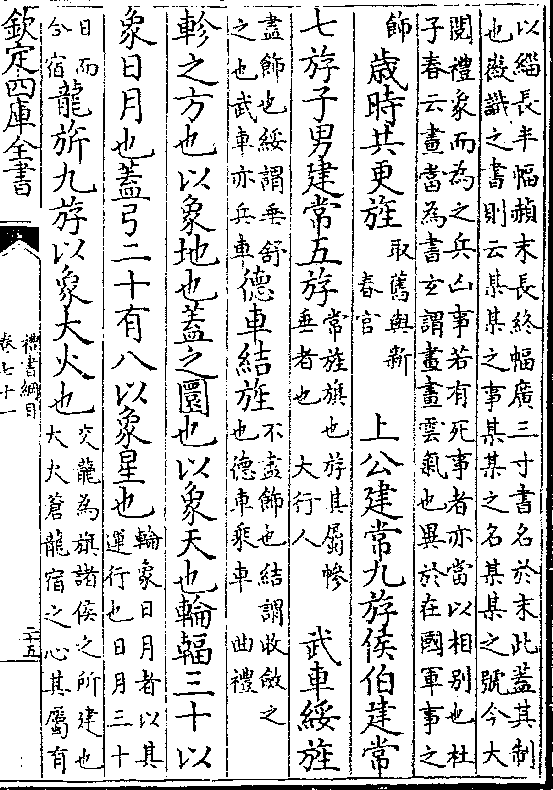 以緇長半幅赬末長終幅廣三寸書名於末此蓋其制
也徽識之書則云某某之事某某之名某某之號今大
閱禮象而為之兵凶事若有死事者亦當以相别也杜
子春云畫當為書𤣥謂畫畫雲氣也異於在國軍事之
飾
歲時共更旌
取舊與新
春官
上公建常九斿侯伯建常
七斿子男建常五斿
常旌旗也斿其屬幓
垂者也 大行人
武車綏旌
盡飾也綏謂垂舒
之也武車亦兵車
德車結旌
不盡飾也結謂收斂之
也德車乘車 曲禮
軫之方也以象地也蓋之圜也以象天也輪輻三十以
象日月也蓋弓二十有八以象星也
輪象日月者以其
運行也日月三十
日而
合宿
龍旂九斿以象大火也
交龍為旗諸侯之所建也
大火蒼龍宿之心其屬有
欽定四庫全書
禮書綱目
卷七十一
二十五